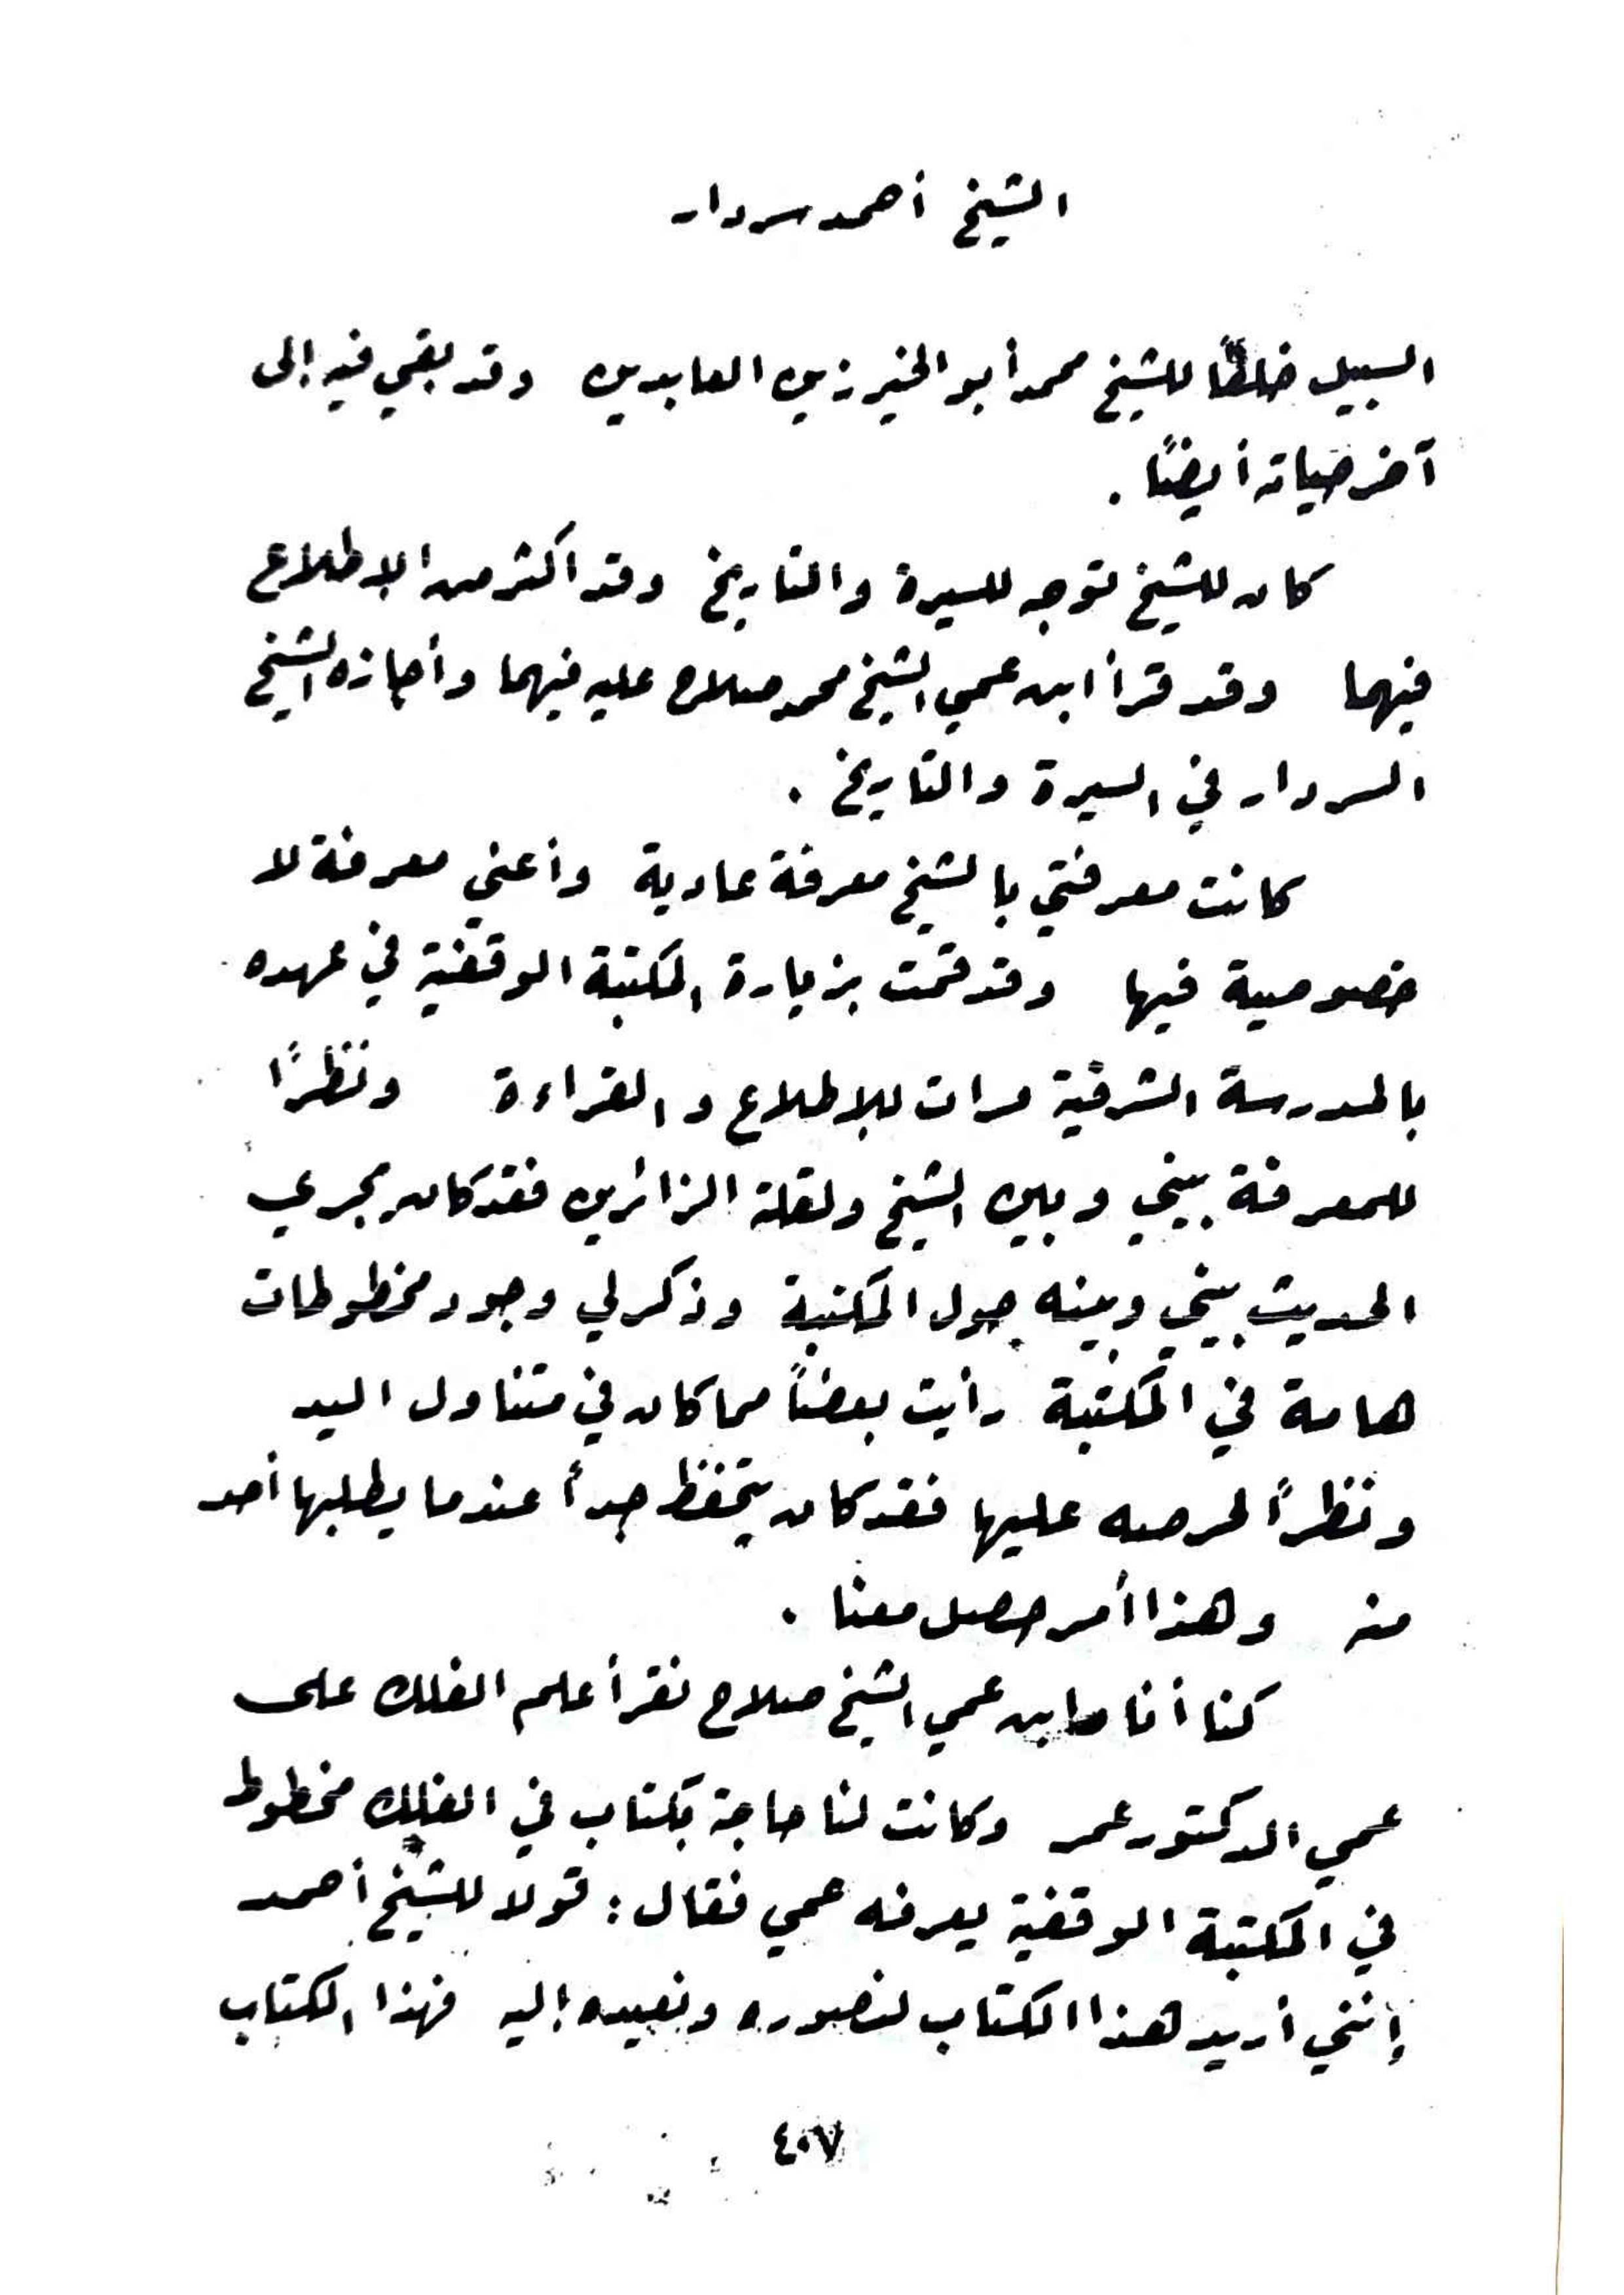 الشيخ أحمد سردار
السبيل خلفًا للشيخ محمد أبو الخير زين العابدين وقد بقي فيه إلى
آخر حياته أيضًا .
كان للشيخ توجه للسيرة والتاريخ وقد اكثر من الإطلاع
فيهما وقد قرأ ابن عمي الشيخ محمد صلاح عليه فيهما وأجازه الشيخ
السردار في السيرة والتاريخ .
كانت معرفتي بالشيخ معرفة عادية وأعني معرفة لا
خصوصية فيها وقد قمت بزيارة المكتبة الوقفية في عهده
بالمدرسة الشرفية مرات للإطلاع والقراءة ونظرًا
للمعرفة بيني وبين الشيخ ولقلة الزائرين فقد كان يجري
الحديث بيني وبينه حول المكتبة وذكر لي وجود مخطوطات
هامة في المكتبة رأيت بعضًا مما كان في متناول اليد
ونظرًا لحرصه عليها فقد كان يتحفظ جدأ عندما يطلبها أحد
منه وهذا أمر حصل معنا .
كنا أنا وابن عمي الشيخ صلاح نقرأ علم الفلك على
عمي الدكتور عمر وكانت لنا حاجة بكتاب في الفلك مخطوط
في المكتبة الوقفية يعرفه عمي فقال : قولا للشيخ أحمد
إنني أريد هذا الكتاب لنصوره ونعيده إليه فهذا الكتاب
٤٠٧